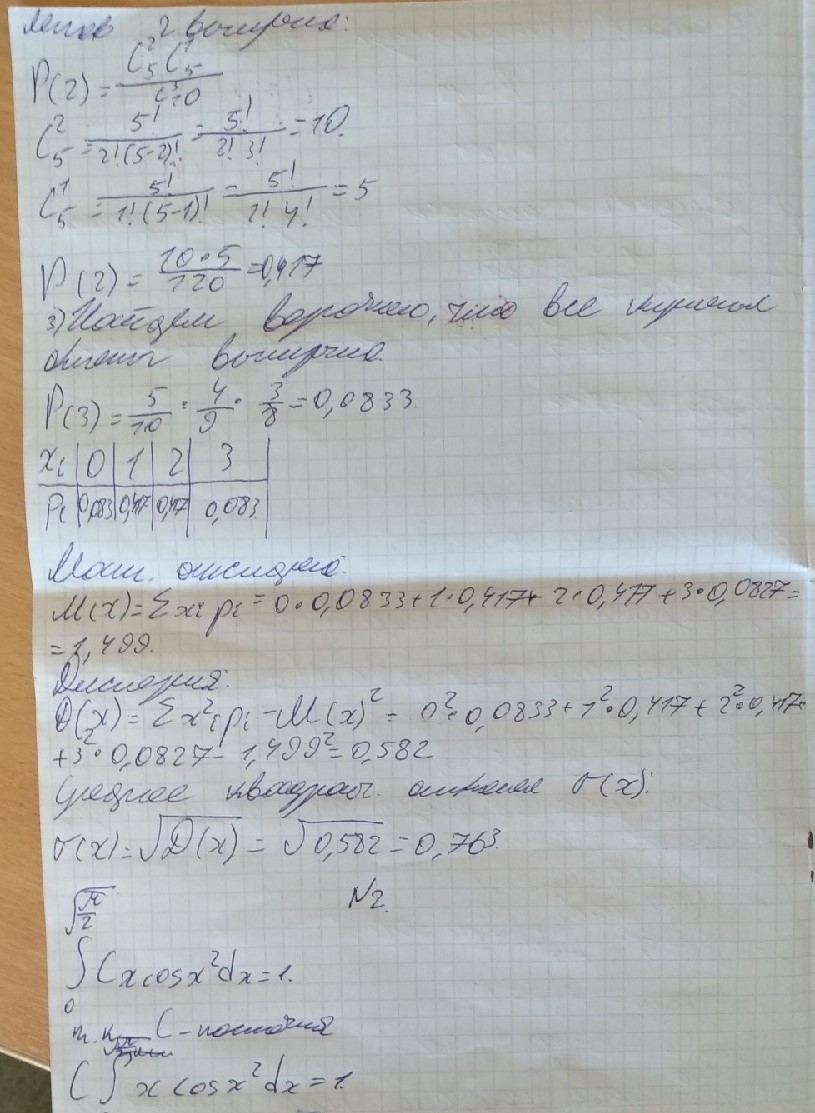 2 выигрыш:
P(2) = C₅² C₅¹ / C³10
C₅² = 5! / 2!(5-2)! = 5! / 2! 3! = 10.
C₅¹ = 5! / 1!(5-1)! = 5! / 1! 4! = 5
P(2) = 10·5 / 120 = 0,417
3) Найдем вероятно, что все
билеты выигрыш.
P(3) = 5/10 · 4/9 · 3/8 = 0,0833.
xi | 0 | 1 | 2 | 3
Pi | 0,083 | 0,417 | 0,417 | 0,083
Мат. ожидание:
M(x) = Σxi pi = 0·0,0833 + 1·0,417 + 2·0,417 + 3·0,0827 =
= 1,499.
Дисперсия:
D(x) = Σx²i pi - M(x)² = 0²·0,0833 + 1²·0,417 + 2²·0,417+
+3²·0,0827 - 1,499² = 0,582
Среднее квадрат. σ(x):
σ(x) = √D(x) = √0,582 = 0,763.
N2.
∫₀^√(π/2) Cx cos x² dx = 1.
т.к. C - постоянная
C ∫ x cos x² dx = 1.